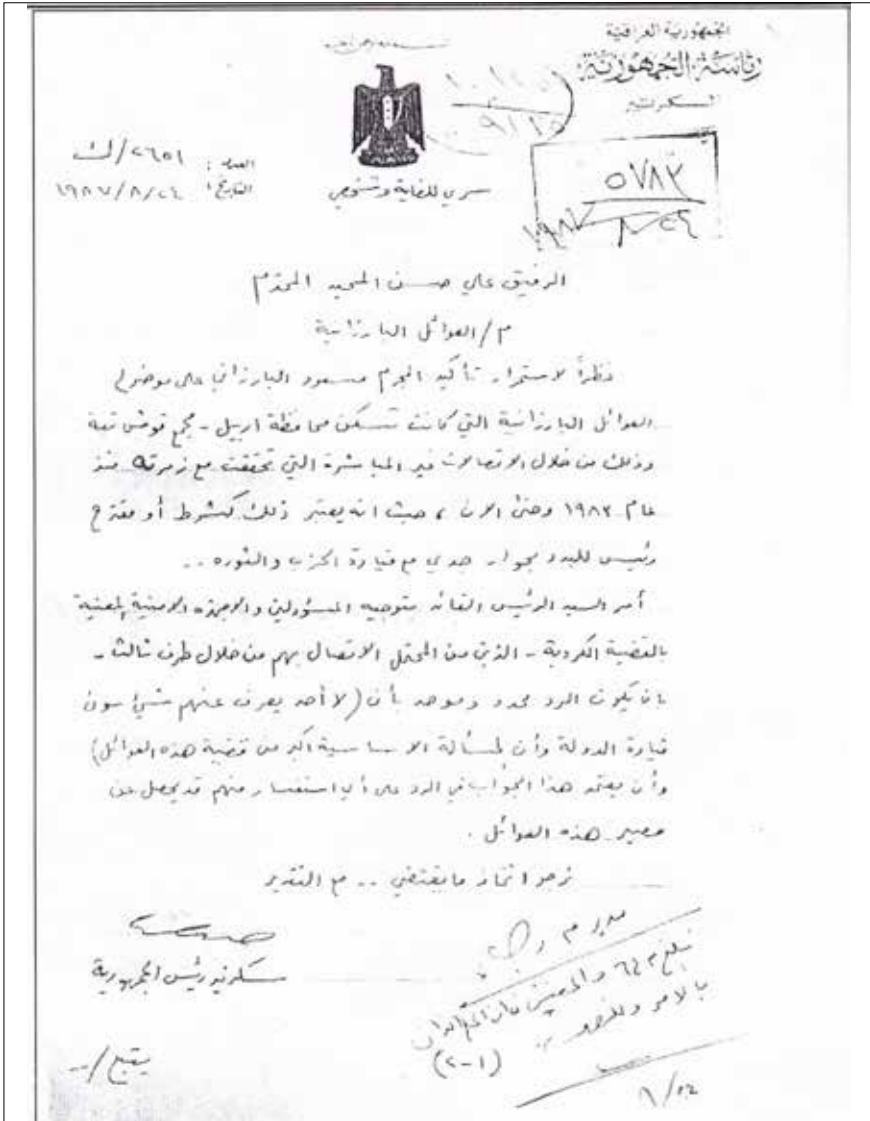 بسم الله الرحمن الرحيم
الجمهورية العراقية
رئاسة الجمهورية
السكرتير
العدد : ٢٦٥١/ك
التاريخ : ١٩٨٧/٨/٢٤
سري للغاية وشخصي
٥٧٨٣
١٩٨٧/٨/٢٤
الرفيق علي حسن المجيد المحترم
م/العوائل البارزانية
نظراً لاستمرار تأكيد المجرم مسعود البارزاني على موضوع
العوائل البارزانية التي كانت تسكن محافظة اربيل - مجمع قوش تبة
وذلك من خلال الاتصالات غير المباشرة التي تحققت مع زمرته منذ
عام ١٩٨٣ وحتى الان ، حيث انه يعتبر ذلك كشرط أو مقترح
رئيس للبدء بحوار جدي مع قيادة الحزب والثوره ..
أمر السيد الرئيس القائد بتوجيه المسؤولين والاجهزه الامنية المعنية
بالقضية الكردية - الذين من المحتمل الاتصال بهم من خلال طرف ثالث -
بان يكون الرد محدد وموحد بأن (لا أحد يعرف عنهم شيئ سوى
قيادة الدولة وأن المسألة الاساسية اكبر من قضية هذه العوائل)
وأن يعتمد هذا الجواب في الرد على أي استفسار منهم قد يحصل عن
مصير هذه العوائل .
نرجو اتخاذ ما يقتضي .. مع التقدير
سكرتير رئيس الجمهورية
يتبع/..
(١-٢)
٨/٢٤